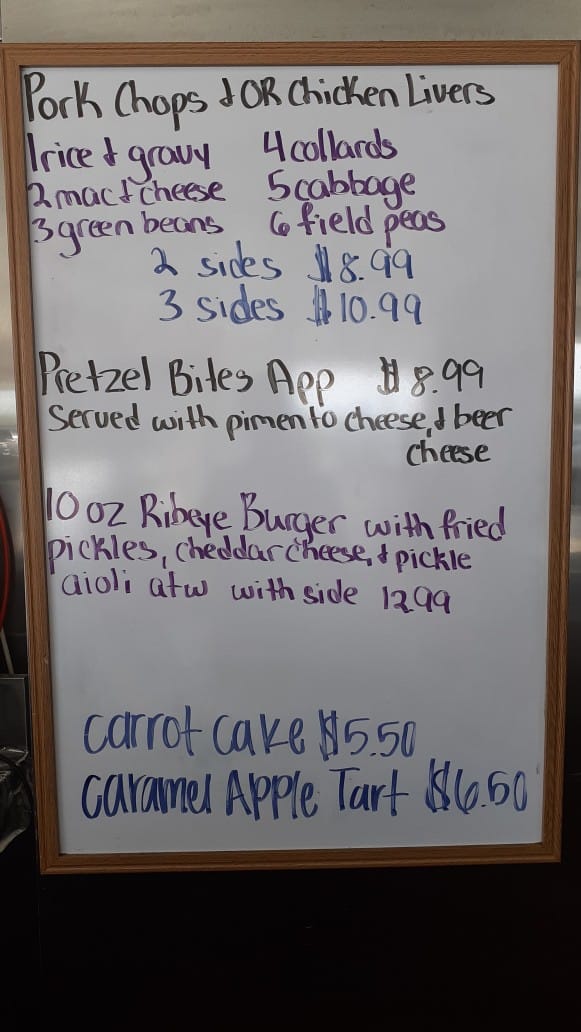 Pork Chops & OR Chicken Livers
1 rice & gravy 4 collards
2 mac & cheese 5 cabbage
3 green beans 6 field peas
2 sides $8.99
3 sides $10.99
Pretzel Bites App $8.99
Served with pimento cheese, & beer
cheese
10 oz Ribeye Burger with fried
pickles, cheddar cheese, & pickle
aioli atw with side 12.99
carrot cake $5.50
caramel Apple Tart $6.50